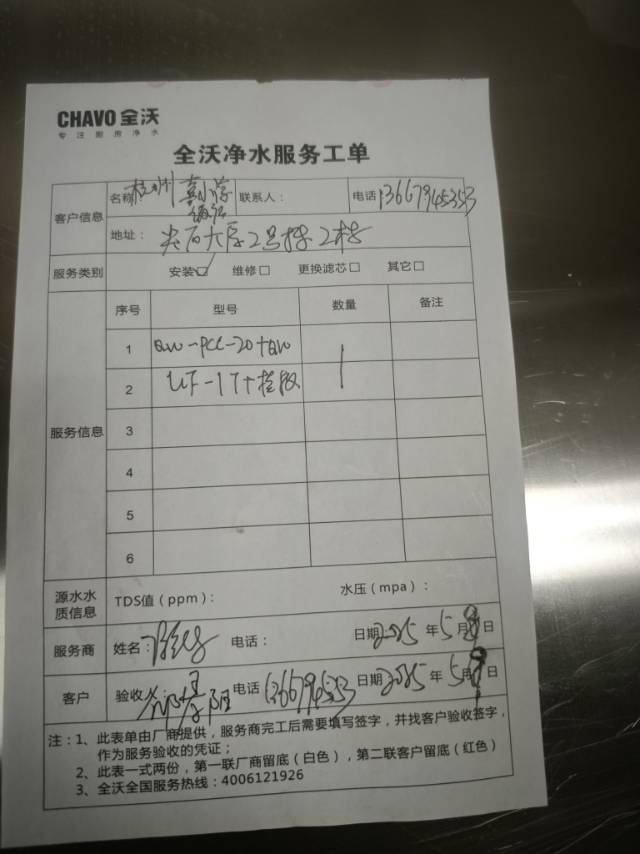 CHAVO 全沃
专注厨房净水
全沃净水服务工单
客户信息 名称 杭州 联系人： 电话 13667945353
地址： 大厦2号楼2楼
服务类别 安装☑ 维修□ 更换滤芯□ 其它□
服务信息 序号 型号 数量 备注
1 QW-PCC-20+QW 1
2 UF-1T+
3
4
5
6
源水水质信息 TDS值（ppm）： 水压（mpa）：
服务商 姓名： 电话： 日期 2025 年 5 月 8 日
客户 验收人 电话 13667945353 日期 2025 年 5 月 日
注：1、此表单由厂商提供，服务商完工后需要填写签字，并找客户验收签字，
作为服务验收的凭证；
2、此表一式两份，第一联厂商留底（白色），第二联客户留底（红色）
3、全沃全国服务热线：4006121926